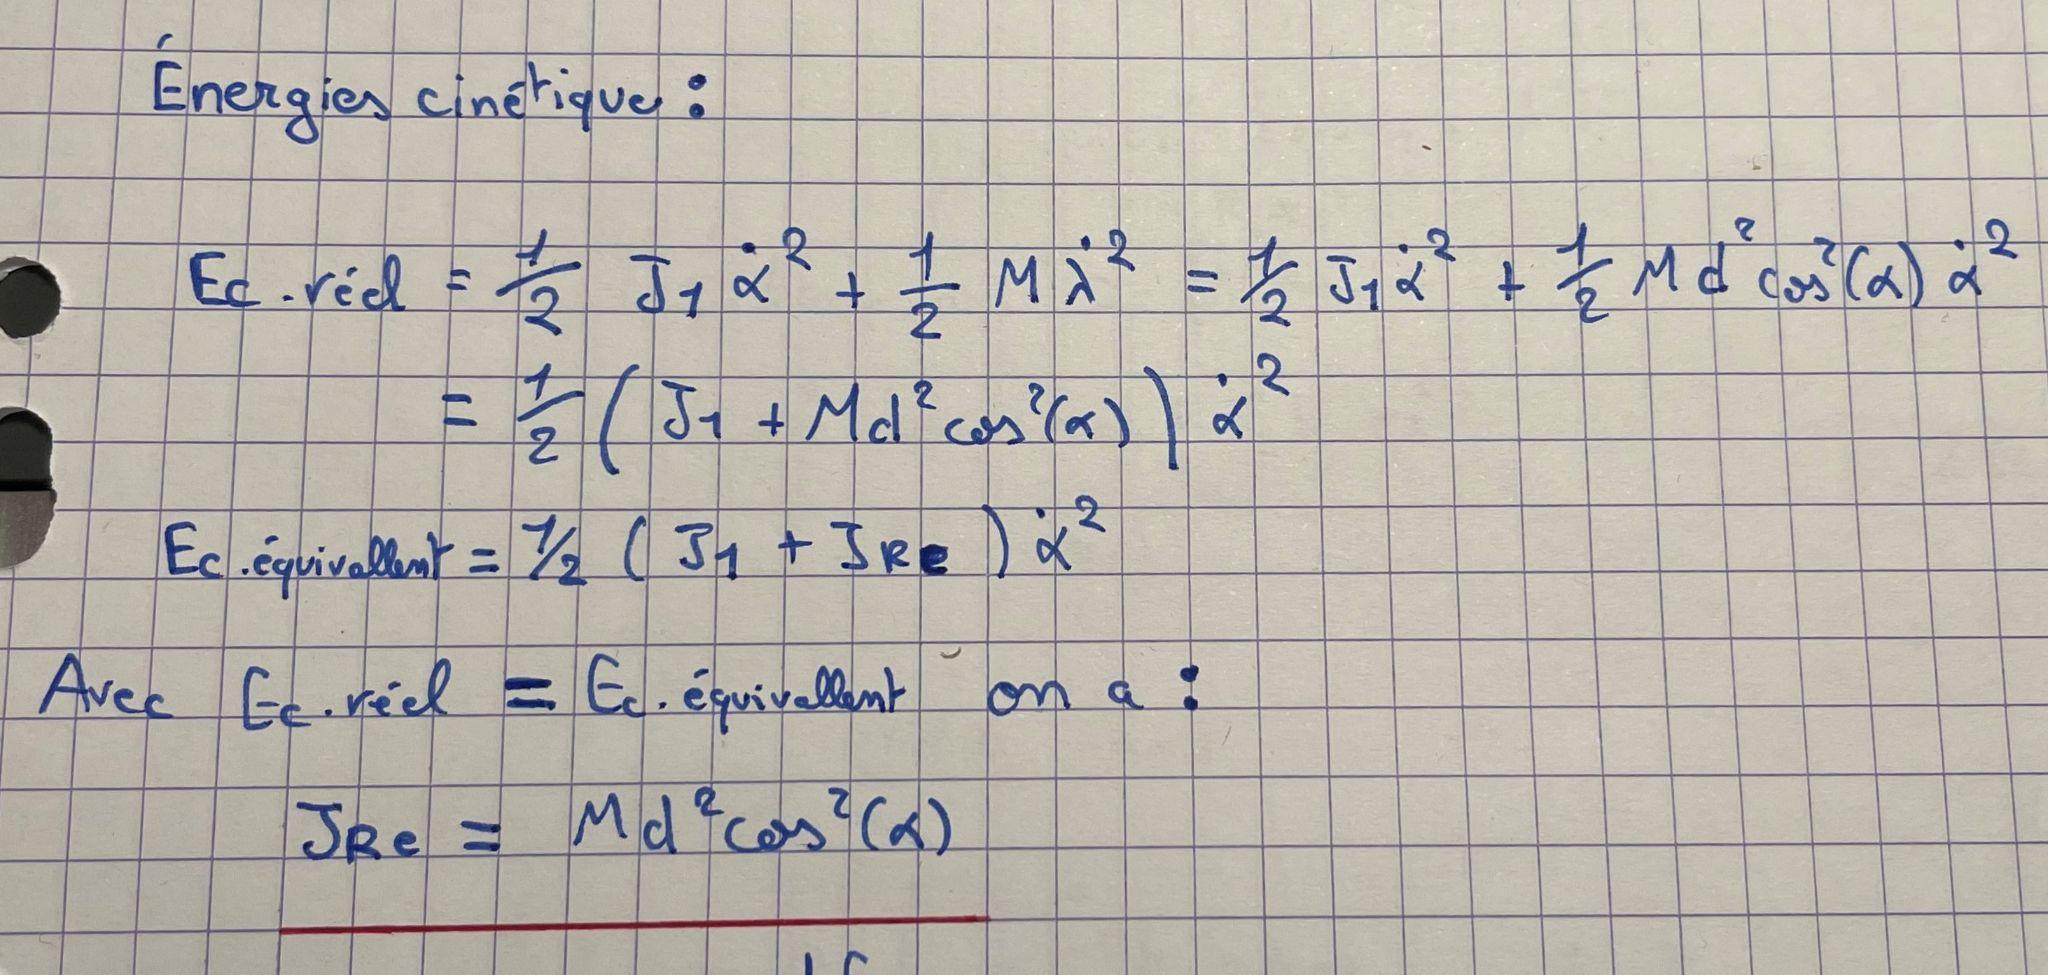 Énergies cinétique :
Ec.réel = 1/2 J1 α̇² + 1/2 M λ̇² = 1/2 J1 α̇² + 1/2 M d² cos²(α) α̇²
= 1/2 ( J1 + M d² cos²(α) ) α̇²
Ec.équivallent = 1/2 ( J1 + JRe ) α̇²
Avec Ec.réel = Ec.équivallent on a :
JRe = M d² cos²(α)